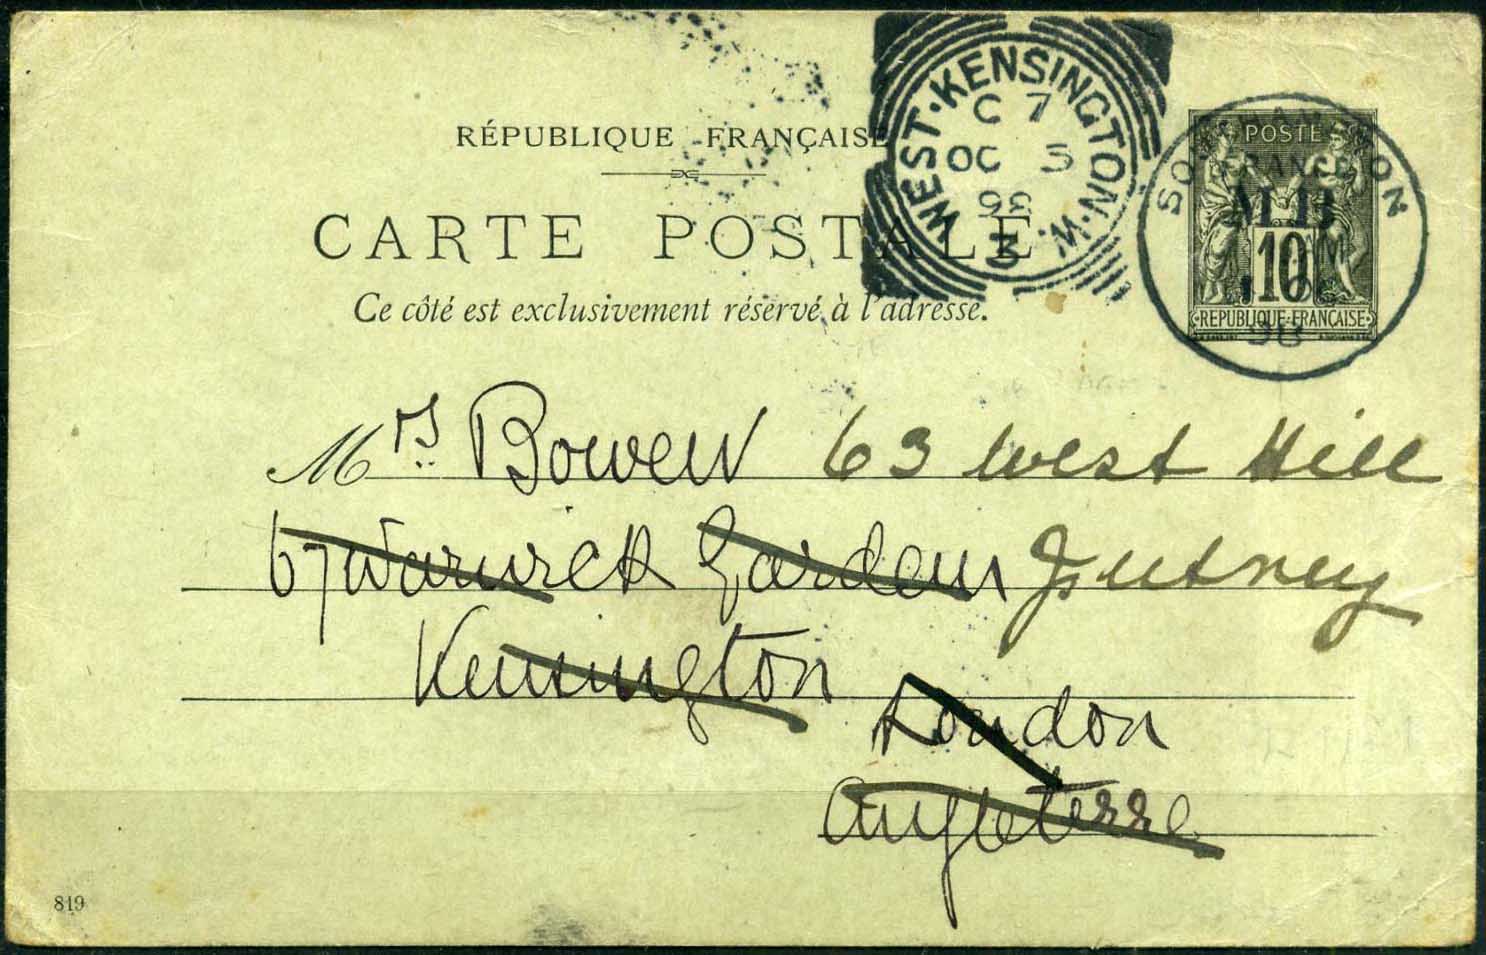 RÉPUBLIQUE FRANÇAISE
CARTE POSTALE
Ce côté est exclusivement réservé à l'adresse.
WEST·KENSINGTON·W.
C 7
OC 5
98
3
SOUTHAMPTON
98
POSTE
FRANCE
M.B
10
REPUBLIQUE FRANÇAISE
Mrs Bowen 63 West Hill
67 Warwick Gardens Putney
Kensington
London
Angleterre
819